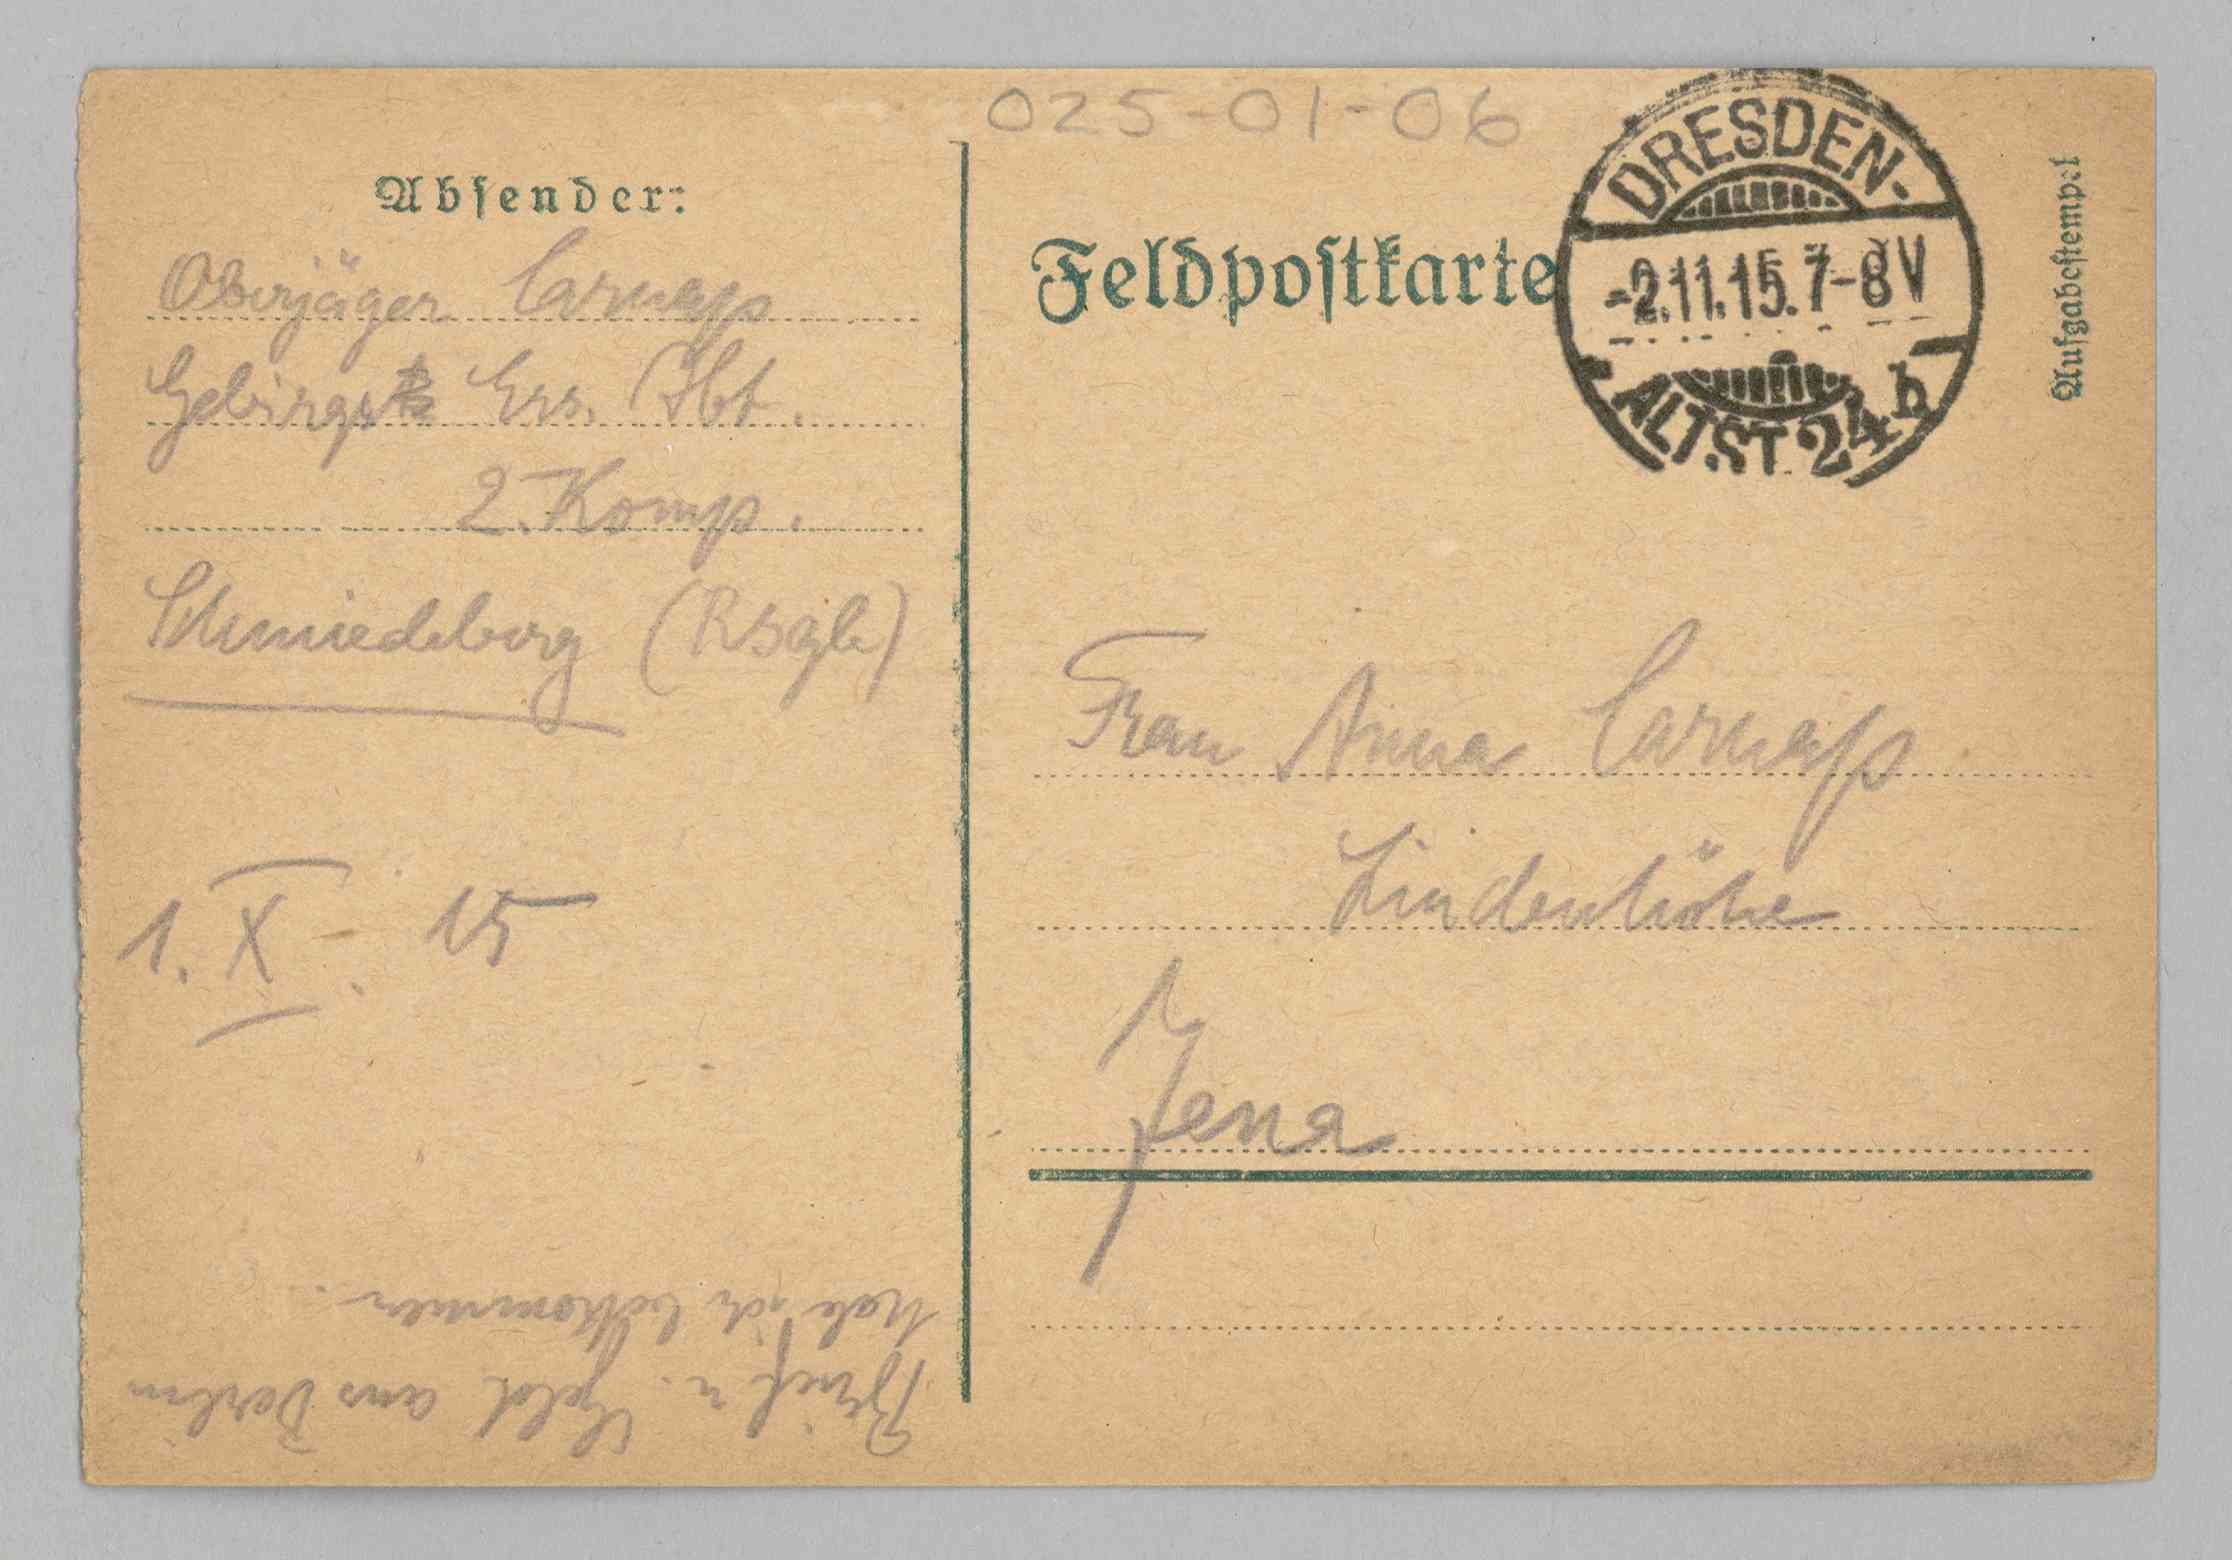 025-01-06
Absender:
Oberjäger Carnap
Gebirgs Ers. Abt.
2. Komp.
Schmiedeberg (Rsgb)
1. X. 15
Brief u. Geld aus Berlin
habe ich bekommen.
Feldpostkarte
DRESDEN-
-2.11.15. 7-8V
ALTST. 24 b
Aufgabestempel
Frau Anna Carnap
Lindenhöhe
Jena